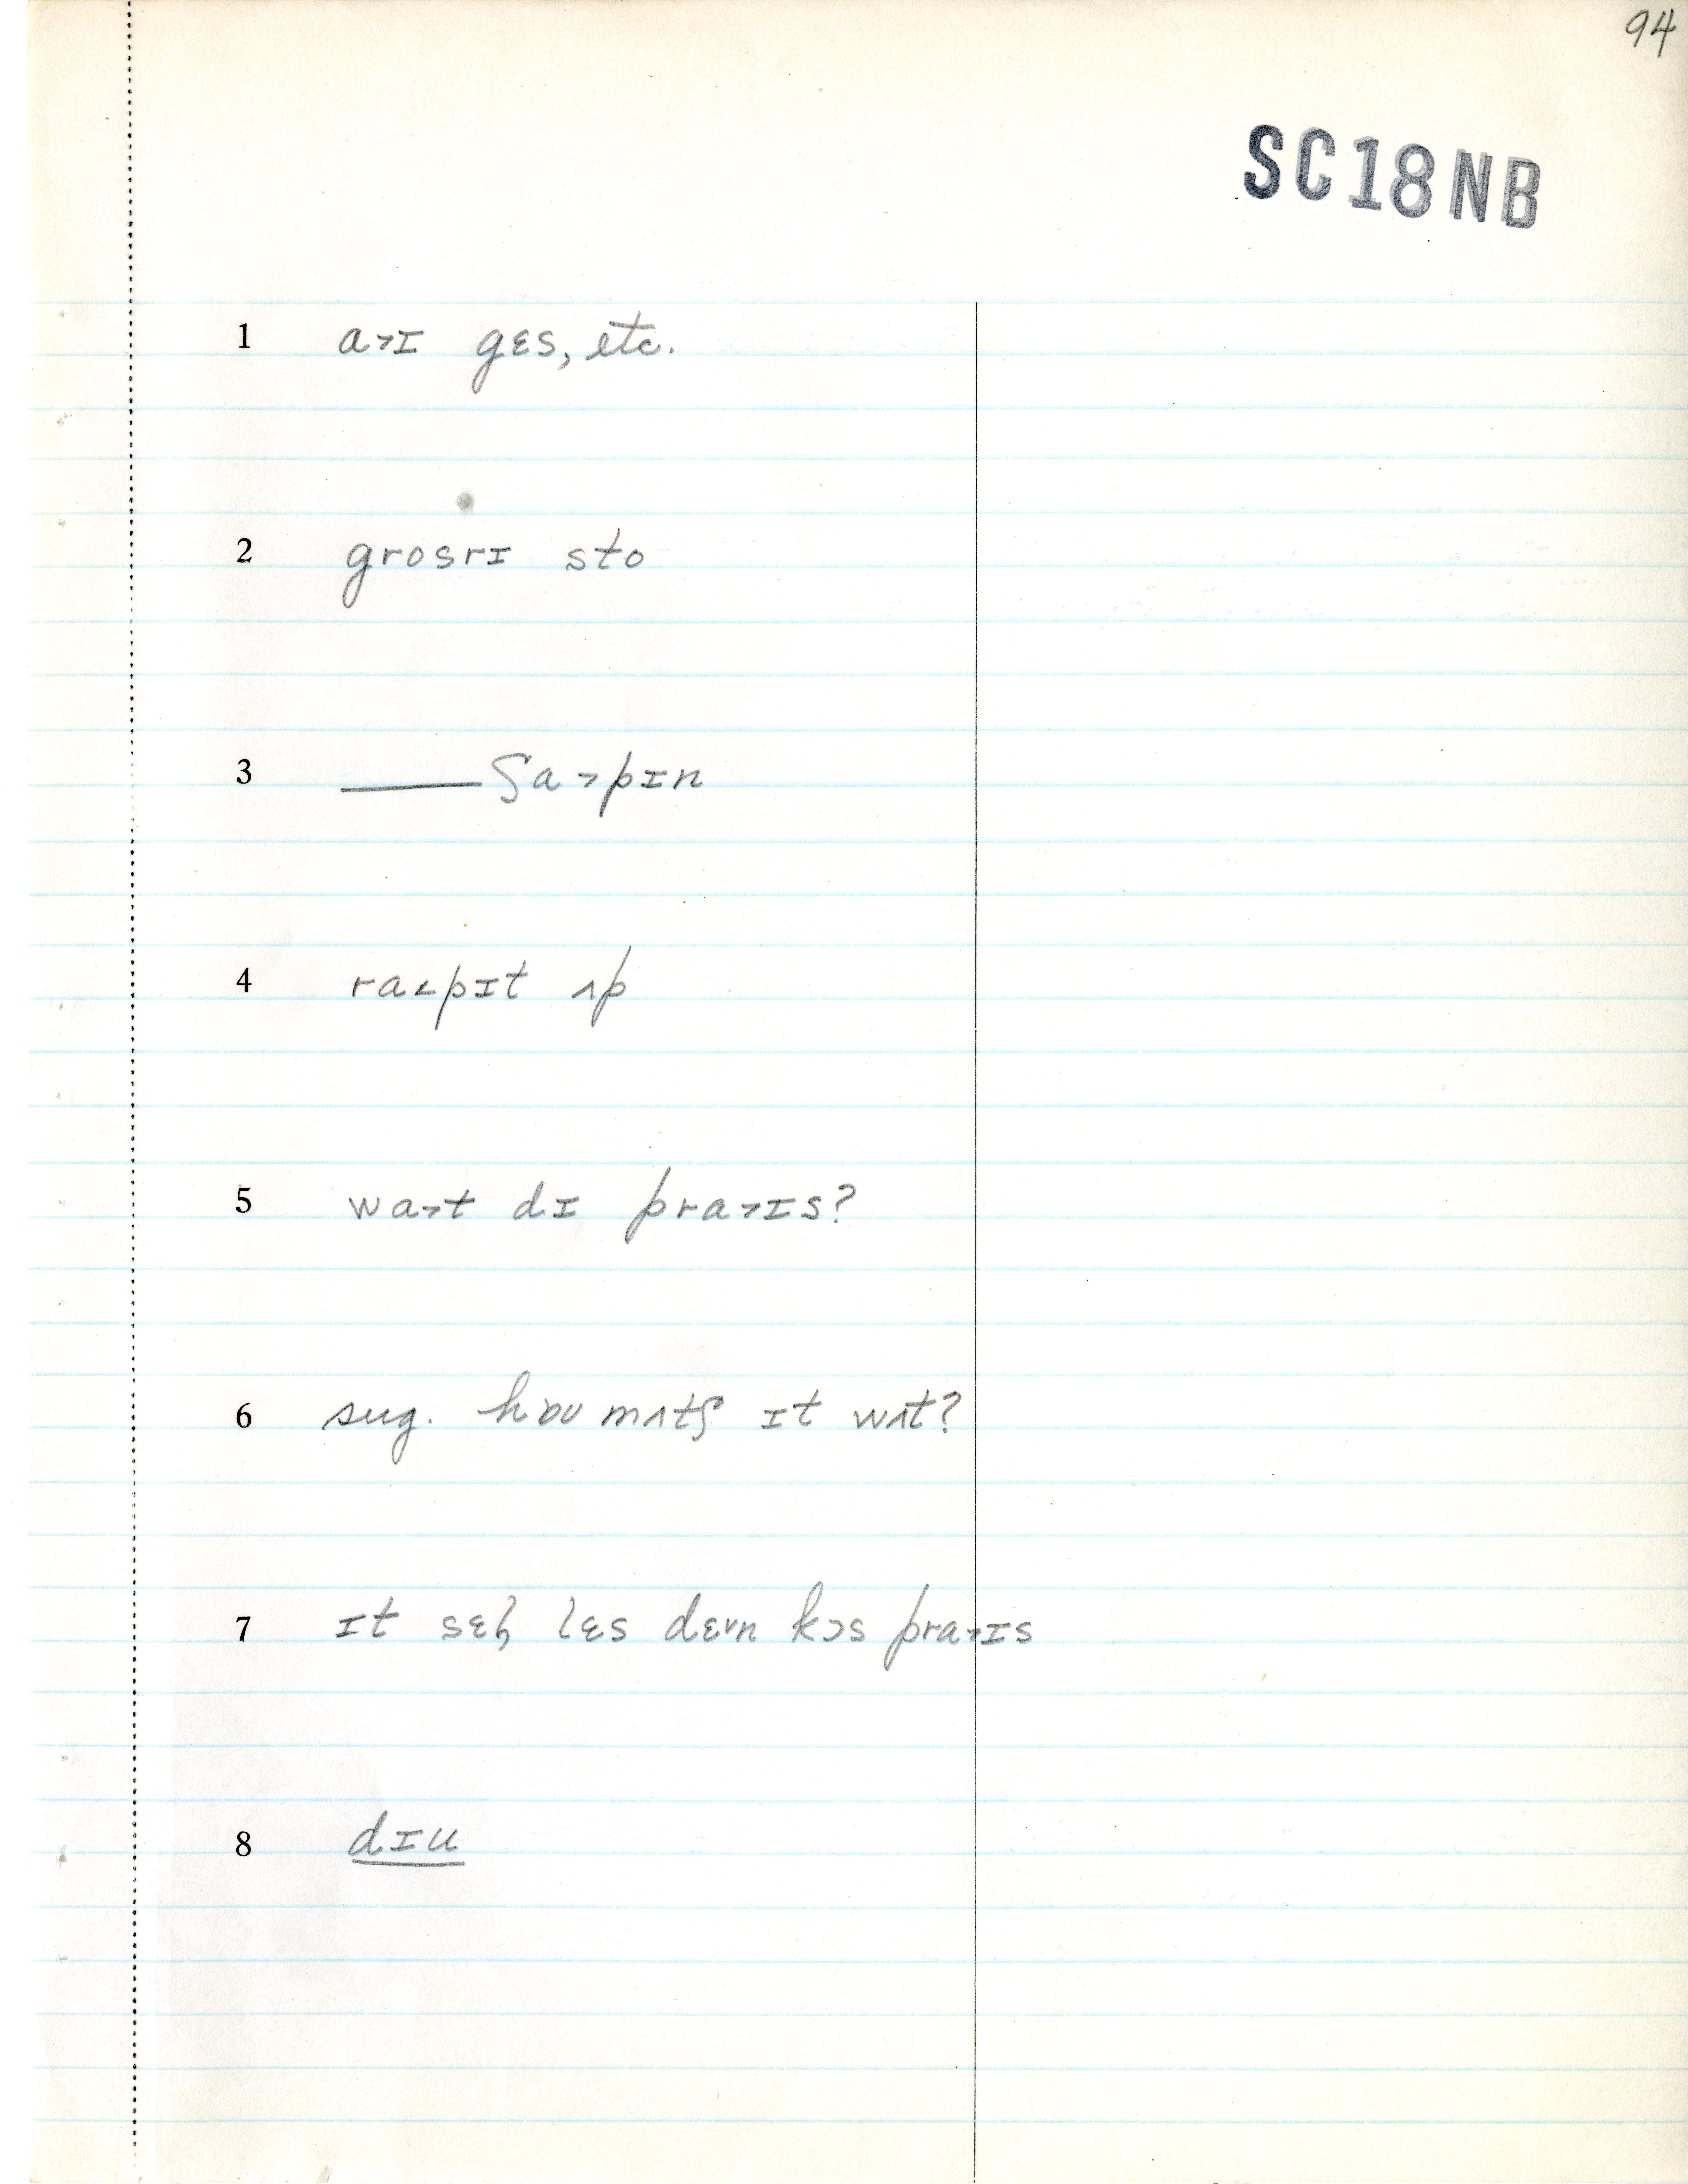 94
SC18NB
1 a˃ɪ gɛs, etc.
2 grosrɪ sto
3 ——ʃa˃pɪn
4 ra˂pɪt ʌp
5 wa˃t dɪ pra˃ɪs?
6 sug. hɒʊ mʌtʃ ɪt wʌt?
7 ɪt sɛl̡ lɛs dɛvn kɔs pra˃ɪs
8 dɪu